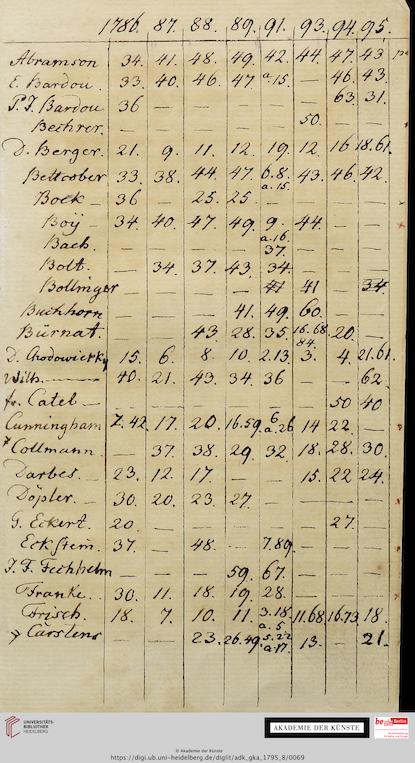 1786. 87. 88. 89. 91. 93. 94. 95.
Abramson 34. 41. 48. 49. 42. 44. 47. 43
E. Bardou. 33. 40. 46. 47. a.15. — 46. 43.
P. J. Bardou 36 — — — — — 63. 31.
Bechrer. — — — — — 50. — —
D. Berger. 21. 9. 11. 12. 19. 12. 16 18.61.
Bettcober 33. 38. 44. 47. 6.8. a.15. 43. 46. 42.
Bock — 36 — 25. 25. — — — —
Boÿ — 34. 40. 47. 49. 9. 44. — —
Bach. — — — — a.16. 37. — — —
Bolt. — 34. 37. 43. 34. — — —
Bollinger — — — — 41 41 — 34.
Buchhorn — — — 41. 49. 60. —
Bürnat. — — 43. 28. 35. 16.68. 84. 20. —
D. Chodowiecky 15. 6. 8. 10. 2.13. 3. 4. 21.61.
Wilh. — 40. 21. 43. 34. 36 — — 62.
fr. Catel — — — — — — 50 40
Cunningham Z.42. 17. 20. 16.59. 6 a.26 14 22 —
Collmann. — 37. 38. 29. 32. 18. 28. 30.
Darbes. 23. 12. 17. — — 15. 22 24.
Döpler. 30. 20. 23. 27. — — — —
G. Eckert. 20. — — — — — 27. —
Eckstein. 37. — 48. — 7.89. — — —
J. F. Fechhelm — — — 59. 67. — — —
Franke. 30. 11. 18. 19. 28. — — —
Frisch. 18. 7. 10. 11. 3.18. a.5. 11.68. 16.73. 18.
Carstens — — 23. 26.49. 5.22 a.17. 13. — 21.
UNIVERSITÄTS-
BIBLIOTHEK
HEIDELBERG
AKADEMIE DER KÜNSTE
© Akademie der Künste
https://digi.ub.uni-heidelberg.de/diglit/adk_gka_1795_8/0069